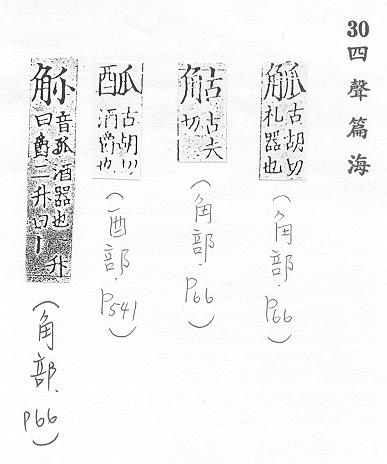 30四聲篇海
觚
古胡切
札器也
(角部.P66)
古夫
切
(角部.P66)
古胡切
酒爵也
(酉部.P541)
音孤酒器也一升
曰爵二升曰丨
(角部.P66)